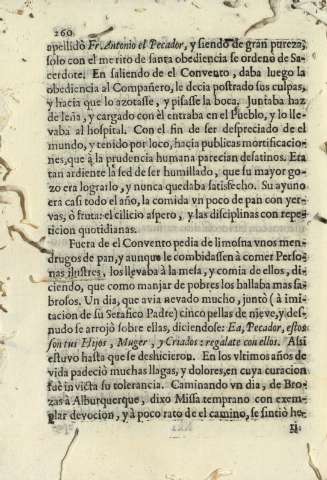 260
apellidò Fr. Antonio el Pecador, y siendo de gran pureza,
solo con el merito de santa obediencia se ordenò de Sa-
cerdote. En saliendo de el Convento, daba luego la
obediencia al Compañero, le decia postrado sus culpas,
y hacia que lo azotasse, y pisasse la boca. Juntaba haz
de leña, y cargado con èl entraba en el Pueblo, y lo lle-
vaba al hospital. Con el fin de ser despreciado de el
mundo, y tenido por loco, hacia publicas mortificacio-
nes, que à la prudencia humana parecian desatinos. Era
tan ardiente la sed de ser humillado, que su mayor go-
zo era lograrlo, y nunca quedaba satisfecho. Su ayuno
era casi todo el año, la comida vn poco de pan con yer-
vas, ò fruta: el cilicio aspero, y las disciplinas con repe-
ticion quotidianas.
Fuera de el Convento pedia de limosna vnos men-
drugos de pan, y aunque le combidassen à comer Perso-
nas ilustres, los llevaba à la mesa, y comia de ellos, di-
ciendo, que como manjar de pobres los hallaba mas sa-
brosos. Un dia, que avia nevado mucho, juntò (à imi-
tacion de su Serafico Padre) cinco pellas de nieve, y des-
nudo se arrojò sobre ellas, diciendose: Ea, Pecador, estos
son tus Hijos, Muger, y Criados: regalate con ellos. Assi
estuvo hasta que se deshicieron. En los vltimos años de
vida padeciò muchas llagas, y dolores, en cuya curacion
fue invicta su tolerancia. Caminando vn dia, de Bro-
zas à Alburquerque, dixo Missa temprano con exem-
plar devocion, y à poco rato de el camino, se sintiò he-
ri-